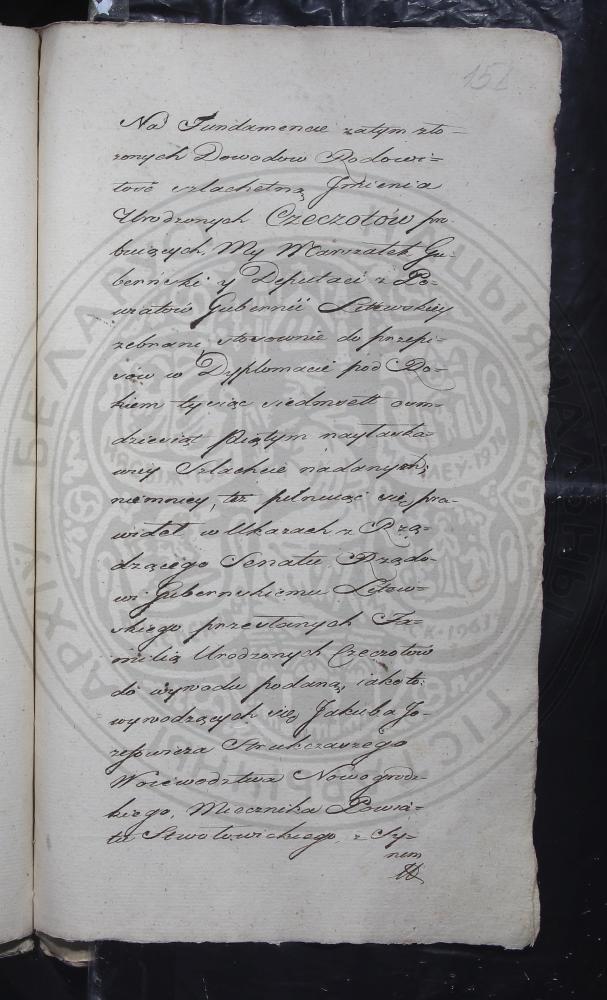 151
Na Fundamencie zatym zło-
żonych Dowodow Rodowi-
tość szlachetną Jmienia
Urodzonych Czeczotów pro-
buiących, My Marszałek Gu-
bernski y Deputaci z Po-
wiatów Gubernii Litewskiey
zebrani, stosownie do przepi-
sów w Dyplomacie pod Ro-
kiem tysiąc siedmsett osm-
dziesiąt piątym nayłaska-
wiey Szlachcie nadanych,
niemniey, też pilnuiąc się pra-
wideł w Ukazach z Rzą-
dzącego Senatu Rządo-
wi Gubernskiemu Litew-
skiego przesłanych Fa-
milią Urodzonych Czeczotów
do wywodu podaną, iako to:
wywodzących się Jakuba Jo-
zefowicza Strukczaszego
Woiewodztwa Nowogrodz-
kiego, Miecznika Powia-
tu Stwołowickiego, z Sy-
nem